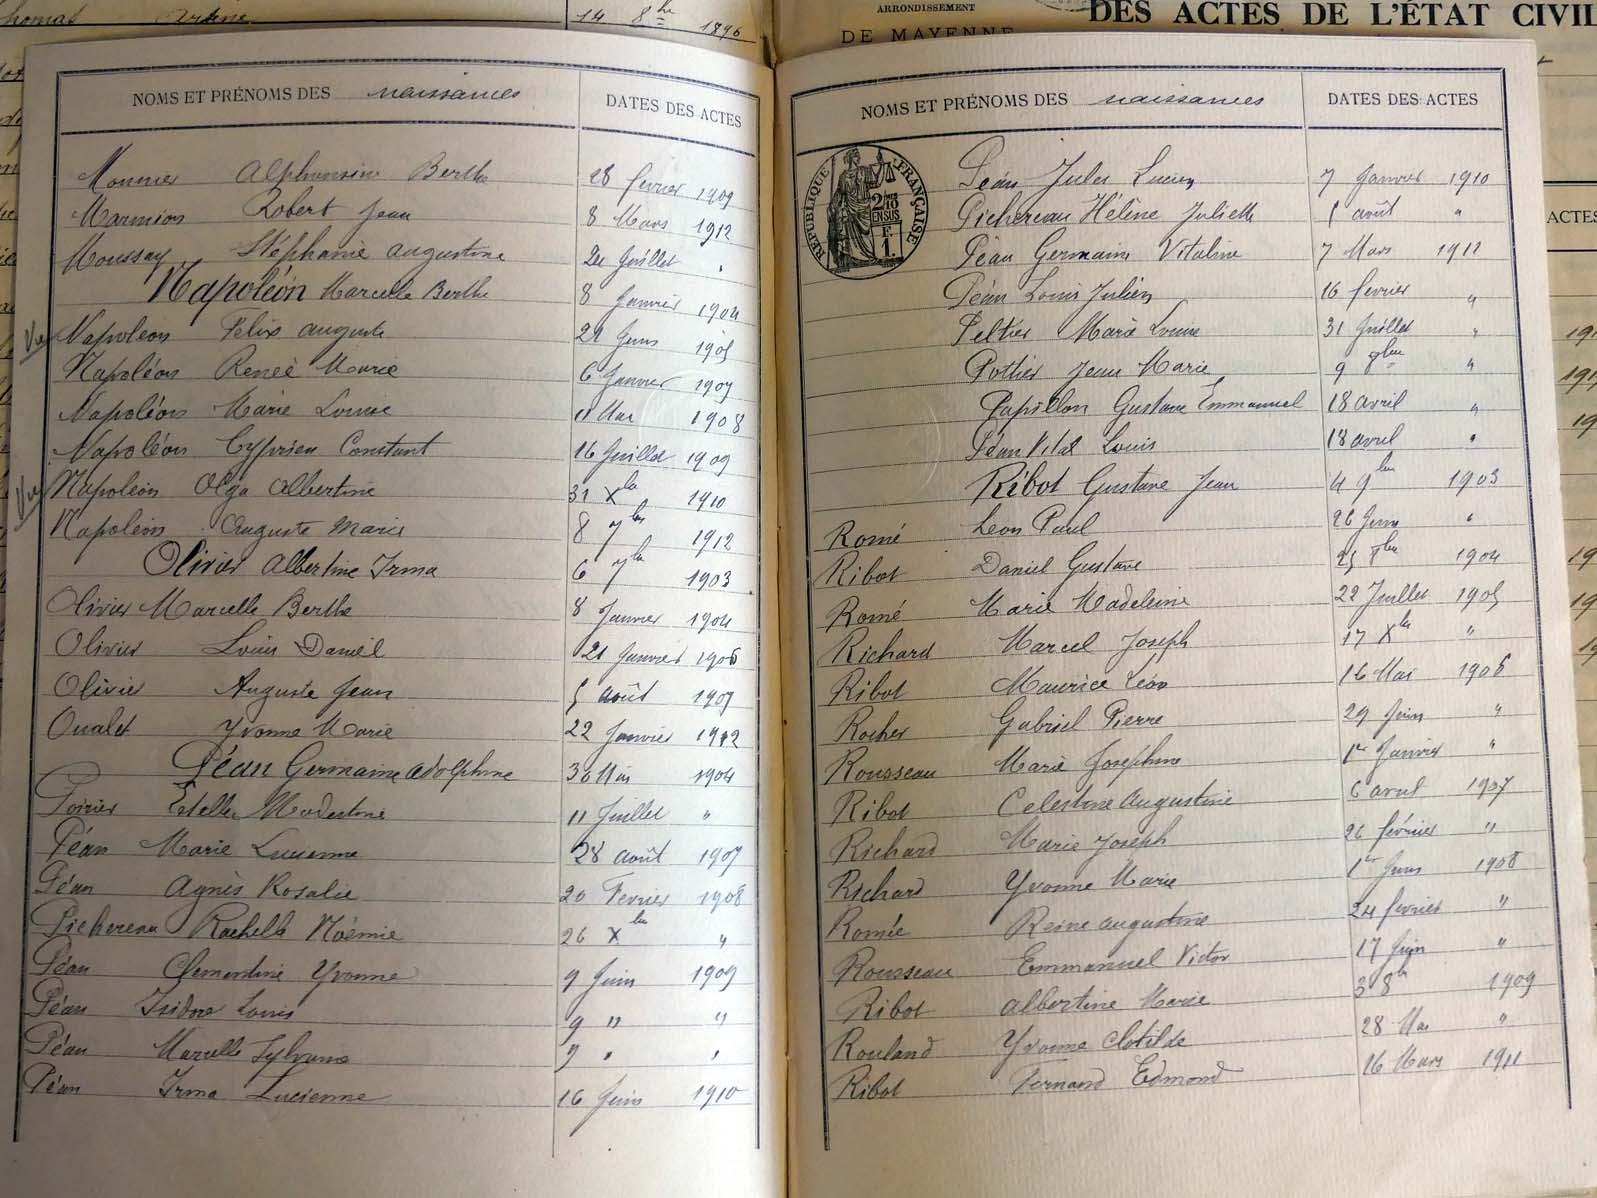 Thomas Arsène 14 8bre 1896
ARRONDISSEMENT
DE MAYENNE
DES ACTES DE L'ÉTAT CIVIL
NOMS ET PRÉNOMS DES naissances DATES DES ACTES
Monnier Alphonsine Berthe 28 fevrier 1909
Marmion Robert Jean 8 Mars 1912
Moussay Stéphanie Augustine 24 Juillet "
Napoléon Marcelle Berthe 8 Janvier 1904
Vu Napoléon Felix Auguste 21 Juin 1905
Napoléon Renée Marie 6 Janvier 1907
Napoléon Marie Louise 11 Mai 1908
Napoléon Cyprien Constant 16 Juillet 1909
Vu Napoléon Olga Albertine 31 Xbre 1910
Napoléon Auguste Marie 8 7bre 1912
Olivier Albertine Irma 6 7bre 1903
Olivier Marcelle Berthe 8 Janvier 1904
Olivier Louis Daniel 21 Janvier 1906
Olivier Auguste Jean 5 août 1907
Oualet Yvonne Marie 22 Janvier 1912
Péan Germaine Adolphine 30 Mai 1904
Poirier Estelle Modestine 11 Juillet "
Péan Marie Lucienne 28 août 1907
Péan Agnès Rosalie 20 Fevrier 1908
Pichereau Rachelle Noémie 26 Xbre "
Péan Clementine Yvonne 9 Juin 1909
Péan Isidore Louis 9 " "
Péan Marcelle Sylvanie 9 " "
Péan Irma Lucienne 16 Juin 1910
NOMS ET PRÉNOMS DES naissances DATES DES ACTES
RÉPUBLIQUE FRANÇAISE
2/10
EN SUS
F.
1.
Péan Jules Lucien 7 Janvier 1910
Pichereau Hélène Juliette 5 août "
Péan Germaine Vitaline 7 Mars 1911
Péan Louis Julien 16 fevrier "
Peltier Marie Louise 31 Juillet "
Pottier Jean Marie 9 9bre "
Papillon Gustave Emmanuel 18 avril "
Péan Vital Louis 18 avril "
Ribot Gustave Jean 4 9bre 1903
Romé Leon Paul 26 Juin "
Ribot Daniel Gustave 25 8bre 1904
Romé Marie Madeleine 22 Juillet 1905
Richard Marcel Joseph 17 Xbre "
Ribot Maurice Léon 16 Mai 1906
Rocher Gabriel Pierre 29 Juin "
Rousseau Marie Josephine 1er Janvier "
Ribot Celestine Augustine 6 avril 1907
Richard Marie Joseph 26 février "
Richard Yvonne Marie 1er Juin 1908
Romée Reine Augustine 24 fevrier "
Rousseau Emmanuel Victor 17 Juin "
Ribot Albertine Marie 3 8bre 1909
Rouland Yvonne Clotilde 28 Mai "
Ribot Fernand Edmond 16 Mars 1911
ACTES